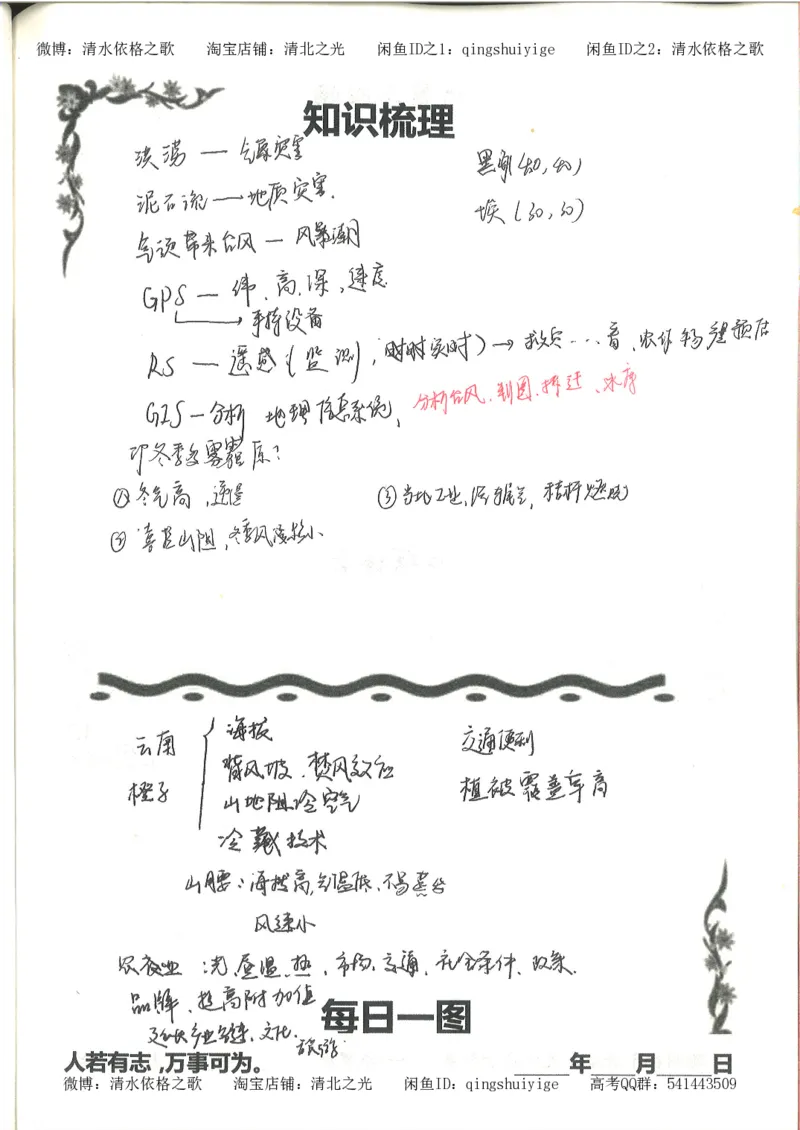 微博：清水依格之歌 淘宝店铺：清北之光 闲鱼ID之1：qingshuiyige 闲鱼ID之2：清水依格之歌
知识梳理
洪涝 — 气象灾害
黑龙江(50, 40)
泥石流 — 地质灾害.
埃(30, 30)
气旋带来台风 — 风暴潮
GPS — 纬、高、深，速度
手持设备
RS — 遥感(监测)，时时实时) → 救灾…
GIS — 分析 地理信息系统，分析台风、制图、拆迁、水库
冬季多雾霾原?
① 冬气高，逆温
③ 当地工业，汽车尾气，秸秆燃烧
② 山阻，冬季风速较小
云南
橙子
海拔
背风坡、焚风效应
山地阻冷空气
冷藏技术
交通便利
植被覆盖率高
山腰：海拔高，气温低、不易蒸发
风速小
农业：光、昼温、热、市场、交通、社会条件、政策.
品牌、提高附加值
延长产业链、文化、旅游
每日一图
人若有志，万事可为。
年 月 日
微博：清水依格之歌 淘宝店铺：清北之光 闲鱼ID：qingshuiyige 高考QQ群：541443509